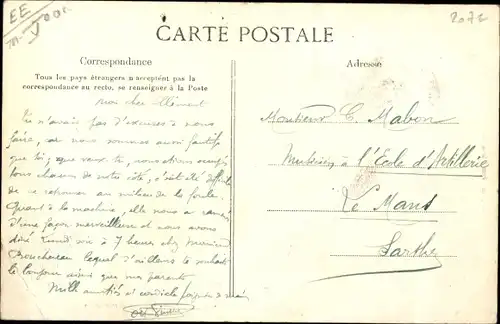 EE
2072
CARTE POSTALE
Correspondance
Adresse
Tous les pays étrangers n'acceptent pas la
correspondance au recto, se renseigner à la Poste
Mon cher Clément
Tu n'avais pas d'excuses à nous
faire, car nous sommes aussi fautifs
que toi; que veux tu, nous étions occupés
tous chacun de notre côté, c'était difficile
de se retrouver au milieu de la foule.
Quant à la machine, elle nous a
d'une façon merveilleuse et nous avons
dîné Lundi soir à 7 heures chez Monsieur
Bouchereau lequel d'ailleurs te souhaite
le bonjour ainsi que mes parents.
Mille amitiés et cordiale poignée de main
Monsieur C. Mabon
Musicien à l'Ecole d'Artillerie
Le Mans
Sarthe